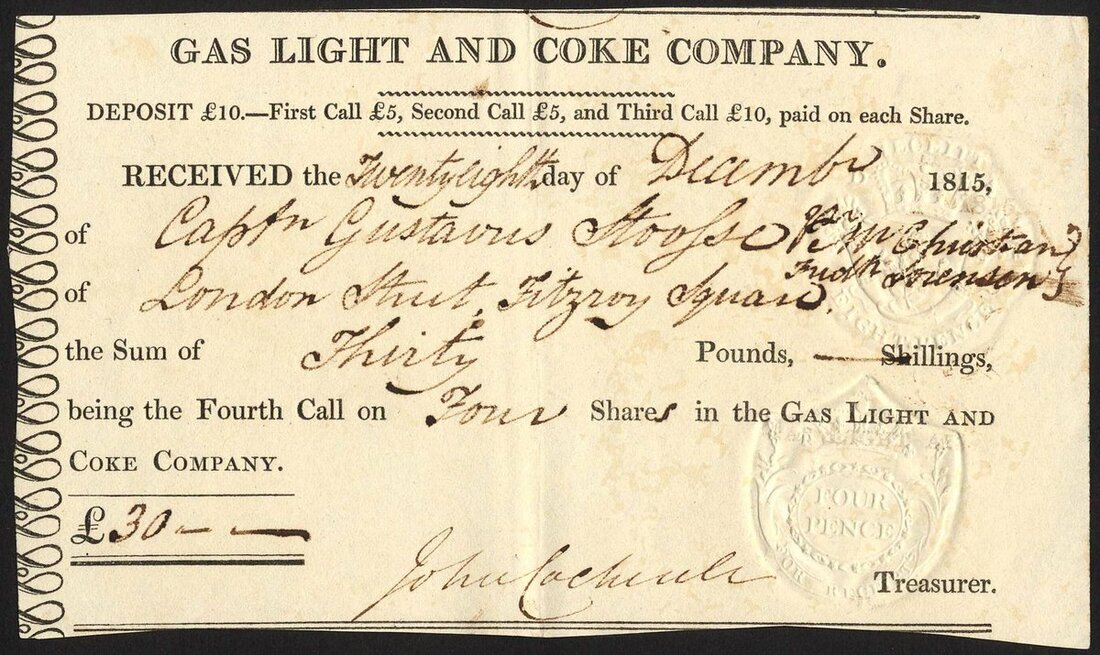 GAS LIGHT AND COKE COMPANY.
DEPOSIT £10.—First Call £5, Second Call £5, and Third Call £10, paid on each Share.
RECEIVED the Twentyeighth day of Decembr 1815,
of Captn Gustavus
Christian
Fredk Sorensen
of London Street, Fitzroy Square,
the Sum of Thirty Pounds, — Shillings,
being the Fourth Call on Four Shares in the GAS LIGHT AND
COKE COMPANY.
£30 — —
John Treasurer.
FOUR
PENCE